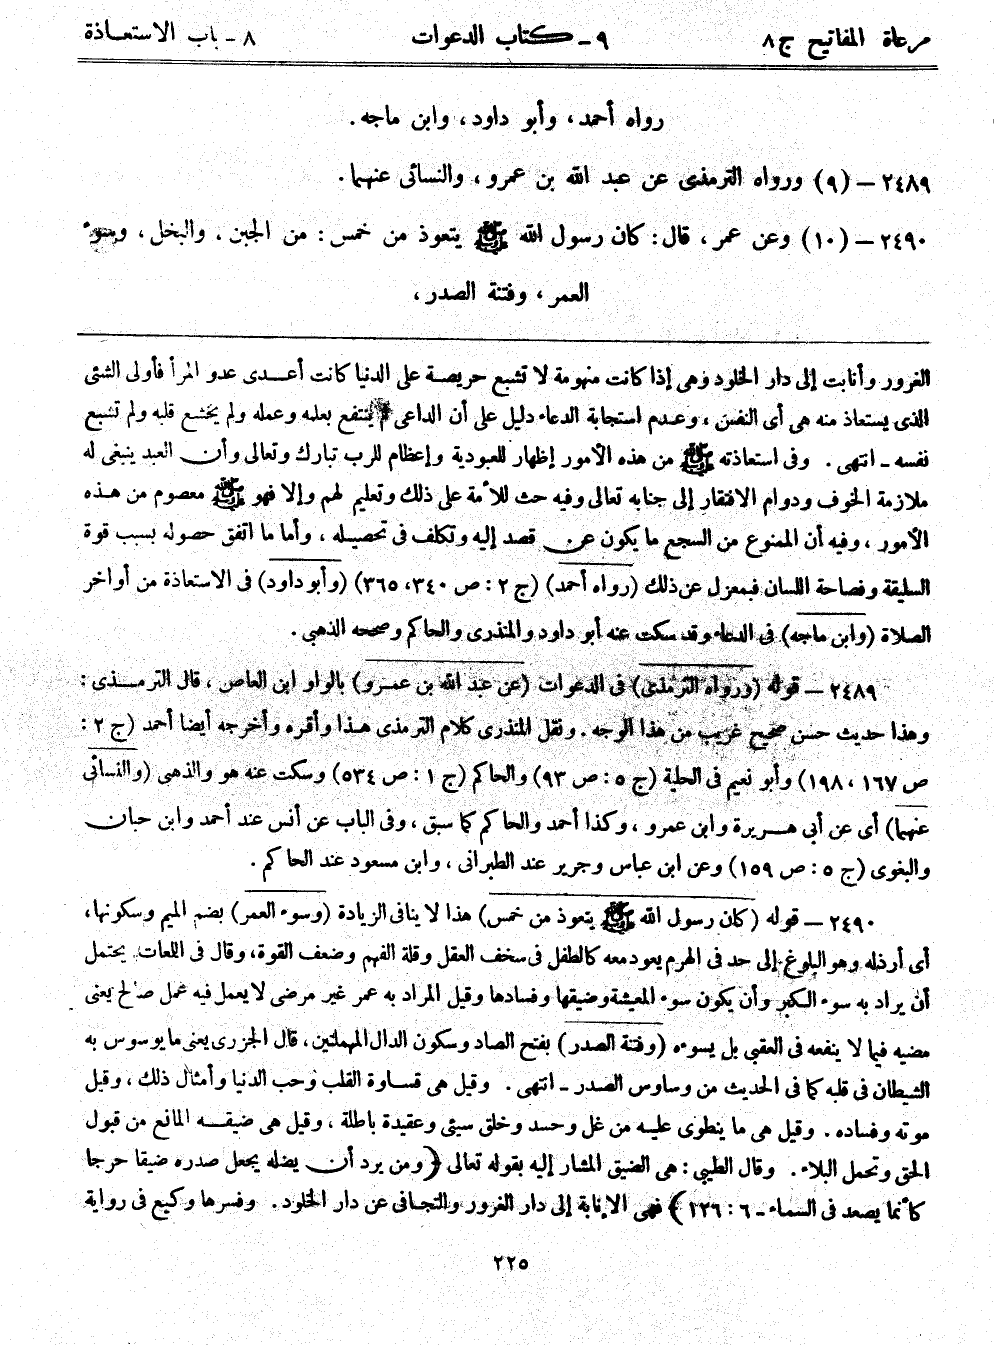 مرعاة المفاتيح ج ٨ ٩ ـ كتاب الدعوات ٨ ـ باب الاستعاذة
رواه أحمد، وأبو داود، وابن ماجه.
٢٤٨٩ – (٩) ورواه الترمذى عن عبد الله بن عمرو، والنسائى عنهما.
٢٤٩٠ – (١٠) وعن عمر، قال: كان رسول الله ﷺ يتعوذ من خمس: من الجبن، والبخل، وسوء
العمر، وفتنة الصدر،
الغرور وأنابت إلى دار الخلود وهى إذا كانت منهومة لا تشبع حريصة على الدنيا كانت أعـدى عدو المرأ فأولى الشئى
الذى يستعاذ منه هى أى النفس، وعدم استجابة الدعاء دليل على أن الداعى لم ينتفع بعلمه وعمله ولم يخشع قلبه ولم تشبع
نفسه ـ انتهى. وفى استعاذته ﷺ من هذه الأمور إظهار للعبودية وإعظام للرب تبارك وتعالى وأن العبد ينبغى له
ملازمة الخوف ودوام الافتقار إلى جنابه تعالى وفيه حث للأمة على ذلك وتعليم لهم وإلا فهو ﷺ معصوم من هـذه
الأمور، وفيه أن الممنوع من السجع ما يكون عن قصد إليه وتكلف فى تحصيله، وأما ما اتفق حصوله بسبب قوة
السليقة وفصاحة اللسان فبمعزل عن ذلك (رواه أحمد) (ج ٢: ص ٣٤٠، ٣٦٥) (وأبو داود) فى الاستعاذة من أواخر
الصلاة (وابن ماجه) فى الدعاء وقد سكت عنه أبو داود والمنذرى والحاكم وصححه الذهبى.
٢٤٨٩ – قوله (ورواه الترمذى) فى الدعوات (عن عبد الله بن عمـرو) بالواو ابن العاص، قال الترمـذى:
وهذا حديث حسن صحيح غريب من هذا الوجه. ونقل المنذرى كلام الترمذى هـذا وأقره وأخرجه أيضا أحمد (ج ٢:
ص ١٦٧، ١٩٨) وأبو نعيم فى الحلية (ج ٥: ص ٩٣) والحاكم (ج ١: ص ٥٣٤) وسكت عنه هو والذهبى (والنسائى
عنهما) أى عن أبى هـريرة وابن عمرو، وكذا أحمد والحاكم كما سبق، وفى الباب عن أنس عند أحمد وابن حبان
والبغوى (ج ٥: ص ١٥٩) وعن ابن عباس وجرير عند الطبرانى، وابن مسعود عند الحاكم.
٢٤٩٠ – قوله (كان رسول الله ﷺ يتعوذ من خمس) هذا لا ينافى الزيادة (وسوء العمر) بضم الميم وسكونها،
أى أرذله وهو البلوغ إلى حد فى الهرم يعود معه كالطفل فى سخف العقل وقلة الفهم وضعف القوة، وقال فى اللمعات يحتمل
أن يراد به سوء الكبر وأن يكون سوء المعيشة وضيقها وفسادها وقيل المراد به عمر غير مرضى لا يعمل فيه عمل صالح يعنى
مضيه فيما لا ينفعه فى العقبى بل يسوءه (وفتنة الصدر) بفتح الصاد وسكون الدال المهملتين، قال الجزرى يعنى ما يوسوس به
الشيطان فى قلبه كما فى الحديث من وساوس الصدر ـ انتهى. وقيل هى قساوة القلب وحب الدنيا وأمثال ذلك، وقيل
موته وفساده. وقيل هى ما ينطوى عليـه من غل وحسد وخلق سيئى وعقيدة باطلة، وقيل هى ضيقـه المانع من قبول
الحق وتحمل البلاء. وقال الطيبى: هى الضيق المشار إليه بقوله تعالى ﴿ومن يرد أن يضله يجعل صدره ضيقا حرجا
كأنما يصعد فى السماء ـ ٦: ١٢٦﴾ فهى الإنابة إلى دار الغرور والتجافى عن دار الخلود. وفسرها وكيع فى رواية
٢٢٥